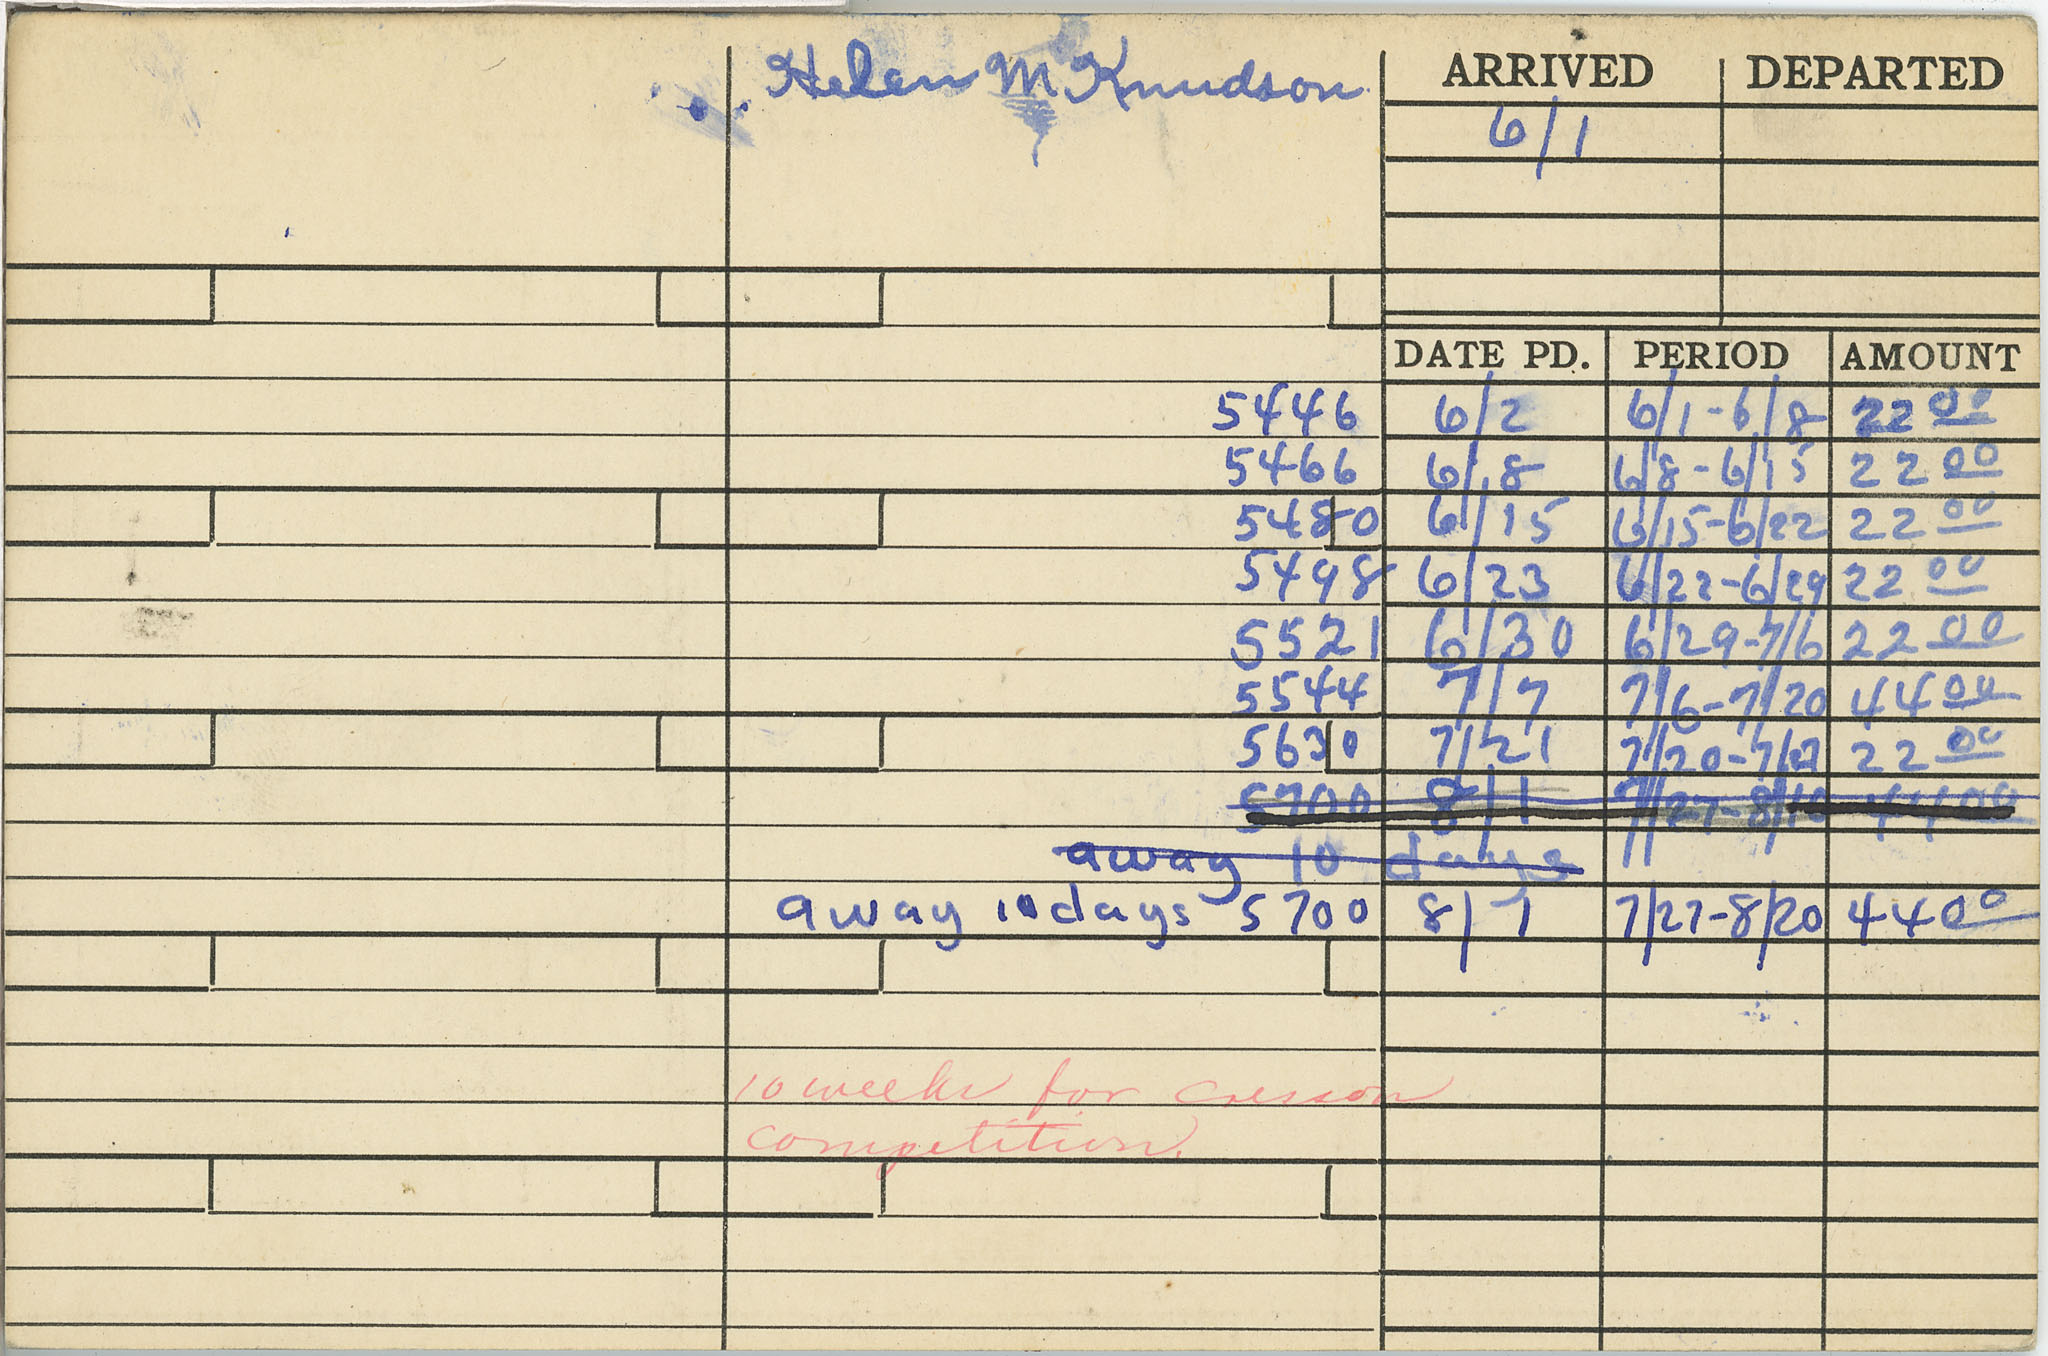 Helen M Knudson
ARRIVED DEPARTED
6/1
DATE PD. PERIOD AMOUNT
5446 6/2 6/1-6/8 22 00
5466 6/8 6/8-6/15 22 00
5480 6/15 6/15-6/22 22 00
5498 6/23 6/22-6/29 22 00
5521 6/30 6/29-7/6 22 00
5544 7/7 7/6-7/20 44 00
5630 7/21 7/20-7/27 22 00
5700 8/1 7/27-8/10 44 00
away 10 days
away 10 days 5700 8/1 7/27-8/20 44 00
10 weeks for cresson
competition.